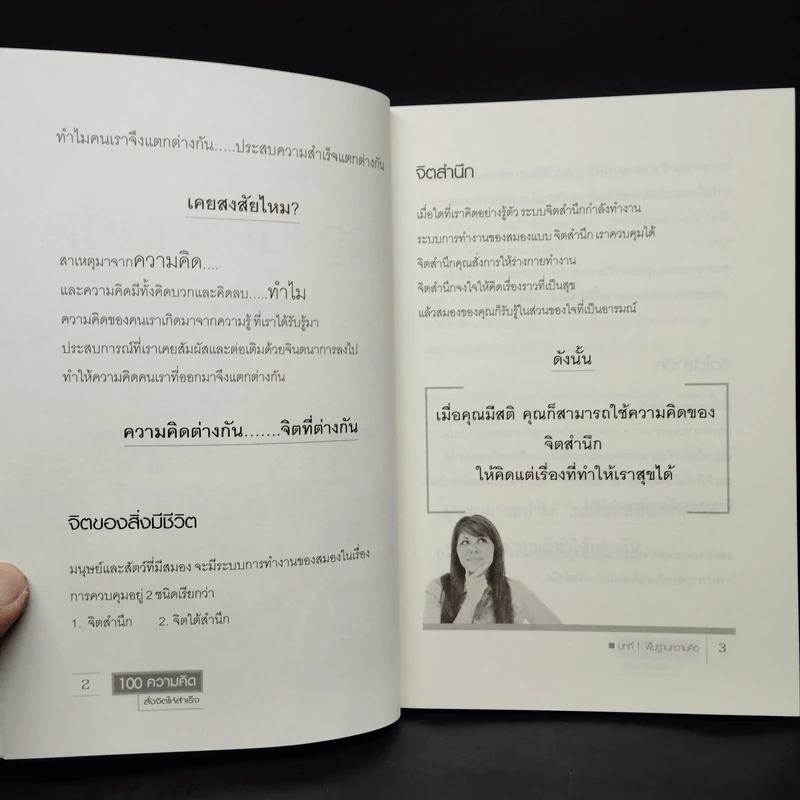 ทำไมคนเราจึงแตกต่างกัน.....ประสบความสำเร็จแตกต่างกัน
เคยสงสัยไหม?
สาเหตุมาจากความคิด....
และความคิดมีทั้งคิดบวกและคิดลบ.....ทำไม
ความคิดของคนเราเกิดมาจากความรู้ ที่เราได้รับรู้มา
ประสบการณ์ที่เราเคยสัมผัสและต่อเติมด้วยจินตนาการลงไป
ทำให้ความคิดคนเราที่ออกมาจึงแตกต่างกัน
ความคิดต่างกัน.......จิตที่ต่างกัน
จิตของสิ่งมีชีวิต
มนุษย์และสัตว์ที่มีสมอง จะมีระบบการทำงานของสมองในเรื่อง
การควบคุมอยู่ 2 ชนิดเรียกว่า
1. จิตสำนึก 2. จิตใต้สำนึก
2 100 ความคิด
สั่งจิตให้สำเร็จ
จิตสำนึก
เมื่อใดที่เราคิดอย่างรู้ตัว ระบบจิตสำนึกกำลังทำงาน
ระบบการทำงานของสมองแบบ จิตสำนึก เราควบคุมได้
จิตสำนึกคุณสั่งการให้ร่างกายทำงาน
จิตสำนึกจงใจให้คิดเรื่องราวที่เป็นสุข
แล้วสมองของคุณก็รับรู้ในส่วนของใจที่เป็นอารมณ์
ดังนั้น
เมื่อคุณมีสติ คุณก็สามารถใช้ความคิดของ
จิตสำนึก
ให้คิดแต่เรื่องที่ทำให้เราสุขได้
■ บทที่ 1 พื้นฐานความคิด 3